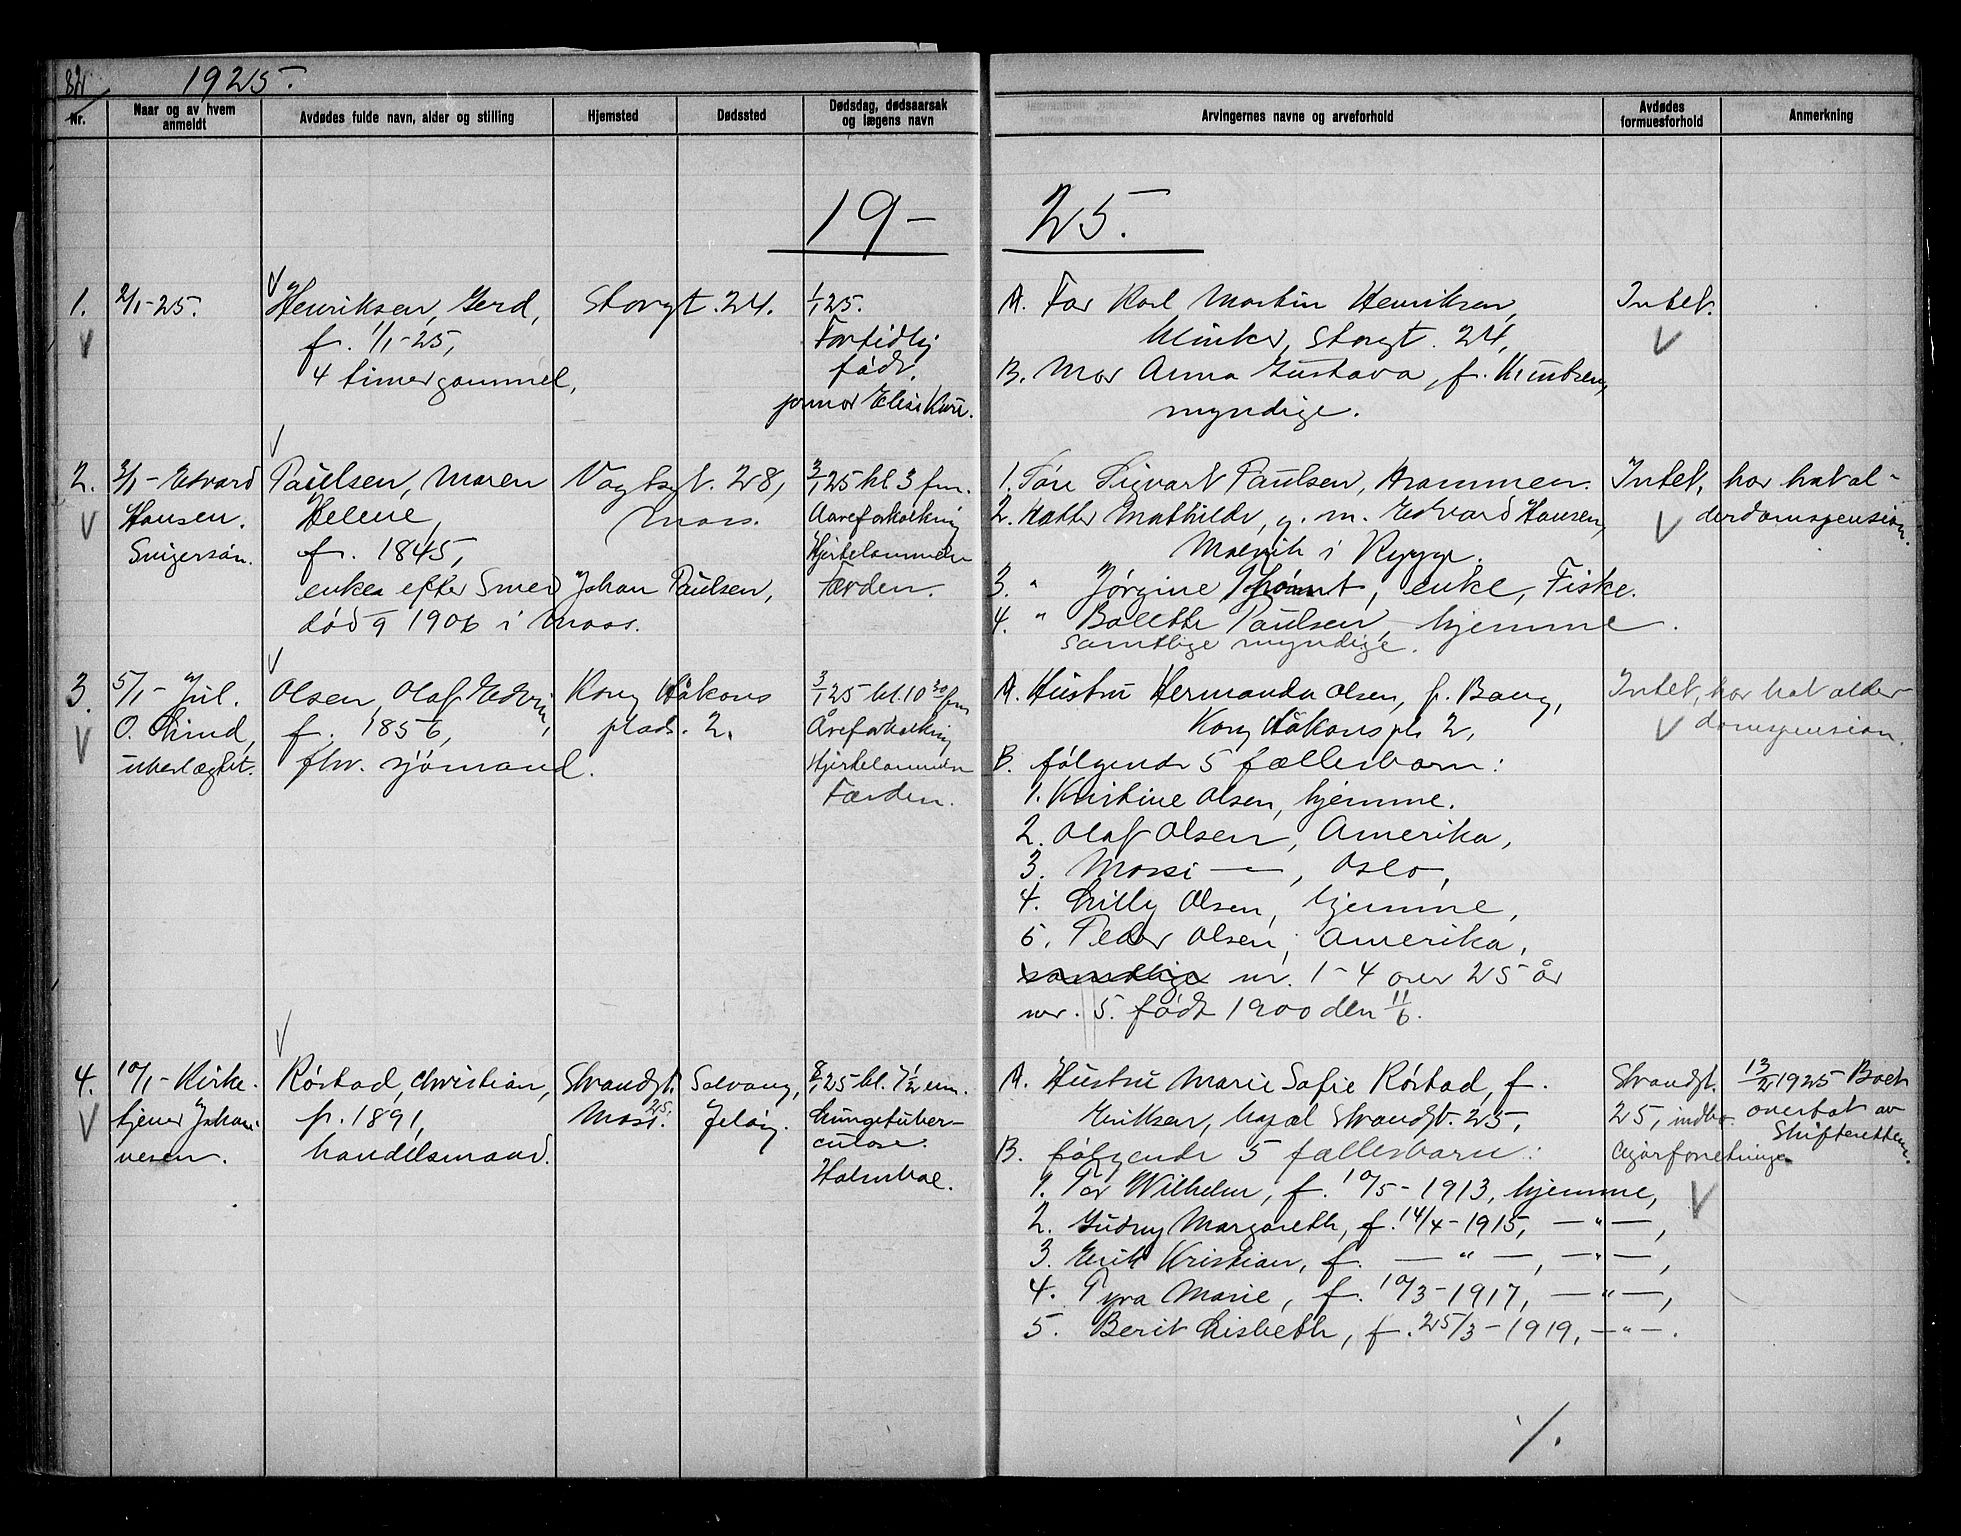 82
1925.
Nr.
Naar og av hvem anmeldt
Avdødes fulde navn, alder og stilling
Hjemsted
Dødssted
Dødsdag, dødsaarsak og lægens navn
Arvingernes navne og arveforhold
Avdødes formuesforhold
Anmerkning
19- 25.
1.
2/1-25.
Henriksen, Gerd,
f. 1/1-25,
4 timer gammel,
Storgt. 24.
1/1 25.
Fortidlig
født.
jormor Elise
A. Far Karl Martin Henriksen,
Storgt. 24,
B. Mor Anna Gustava, f. Knutsen,
myndige.
Intet.
2.
3/1- Edvard
Hansen.
Svigersøn.
Paulsen, Maren
Helene,
f. 1845,
enke efter Smed Johan Paulsen,
død 1906 i Moss.
Vogtsgt. 28,
Moss.
3/1 25 kl 3 fm.
Aareforkalkning
Hjertelammelse
Færden.
1. Søn Sigvart Paulsen, Drammen.
2. Datter Mathilde, g. m. Edvard Hansen,
i Rygge.
3. " Jørgine enke, Fiske.
4. " Bolette Paulsen, hjemme.
samtlige myndige.
Intet, har hat al-
derdomspension.
3.
5/1- Jul.
O. Lind,
ubeslægtet.
Olsen, Olaf Edvin,
f. 1856,
fhv. sjömand.
Kong Håkons
plads. 2.
3/1 25 kl. 10 30 fm
Åreforkalkning
Hjertelammelse
Færden.
A. Hustru Hermanda Olsen, f. Bang,
Kong Håkons pl. 2,
B. følgende 5 fællesbarn:
1. Kristine Olsen, hjemme.
2. Olaf Olsen, Amerika,
3. Mossi —, Oslo,
4. Lilly Olsen, hjemme,
5. Peder Olsen, Amerika,
samtlige nr. 1-4 over 25 år
nr. 5. født 1900 den 11/6.
Intet, har hat alder-
domspension.
4.
10/1- Kirke-
tjener Johan-
nesen.
Röstad, Christian,
f. 1891,
handelsmand.
Strandgt. 25.
Moss.
Solvang,
Jeløy.
8/1 25 kl. 7 1/2 em.
Lungetuber-
culose.
Holmboe.
A. Hustru Marie Sofie Röstad, f.
Eriksen, Strandgt. 25,
B. følgende 5 fællesbarn:
1. Tor Wilhelm, f. 10/5-1913, hjemme,
2. Gudny Margareth, f. 14/4-1915, — " —,
3. Erik Kristian, f. — " —, — " —,
4. Tyra Marie, f. 10/3-1917, — " —,
5. Berit Lisbeth, f. 25/3-1919, — " —.
Strandgt.
25, indbo.
cigarforretning
13/2 1925 Boet
overtat av
Skifteretten.
%.